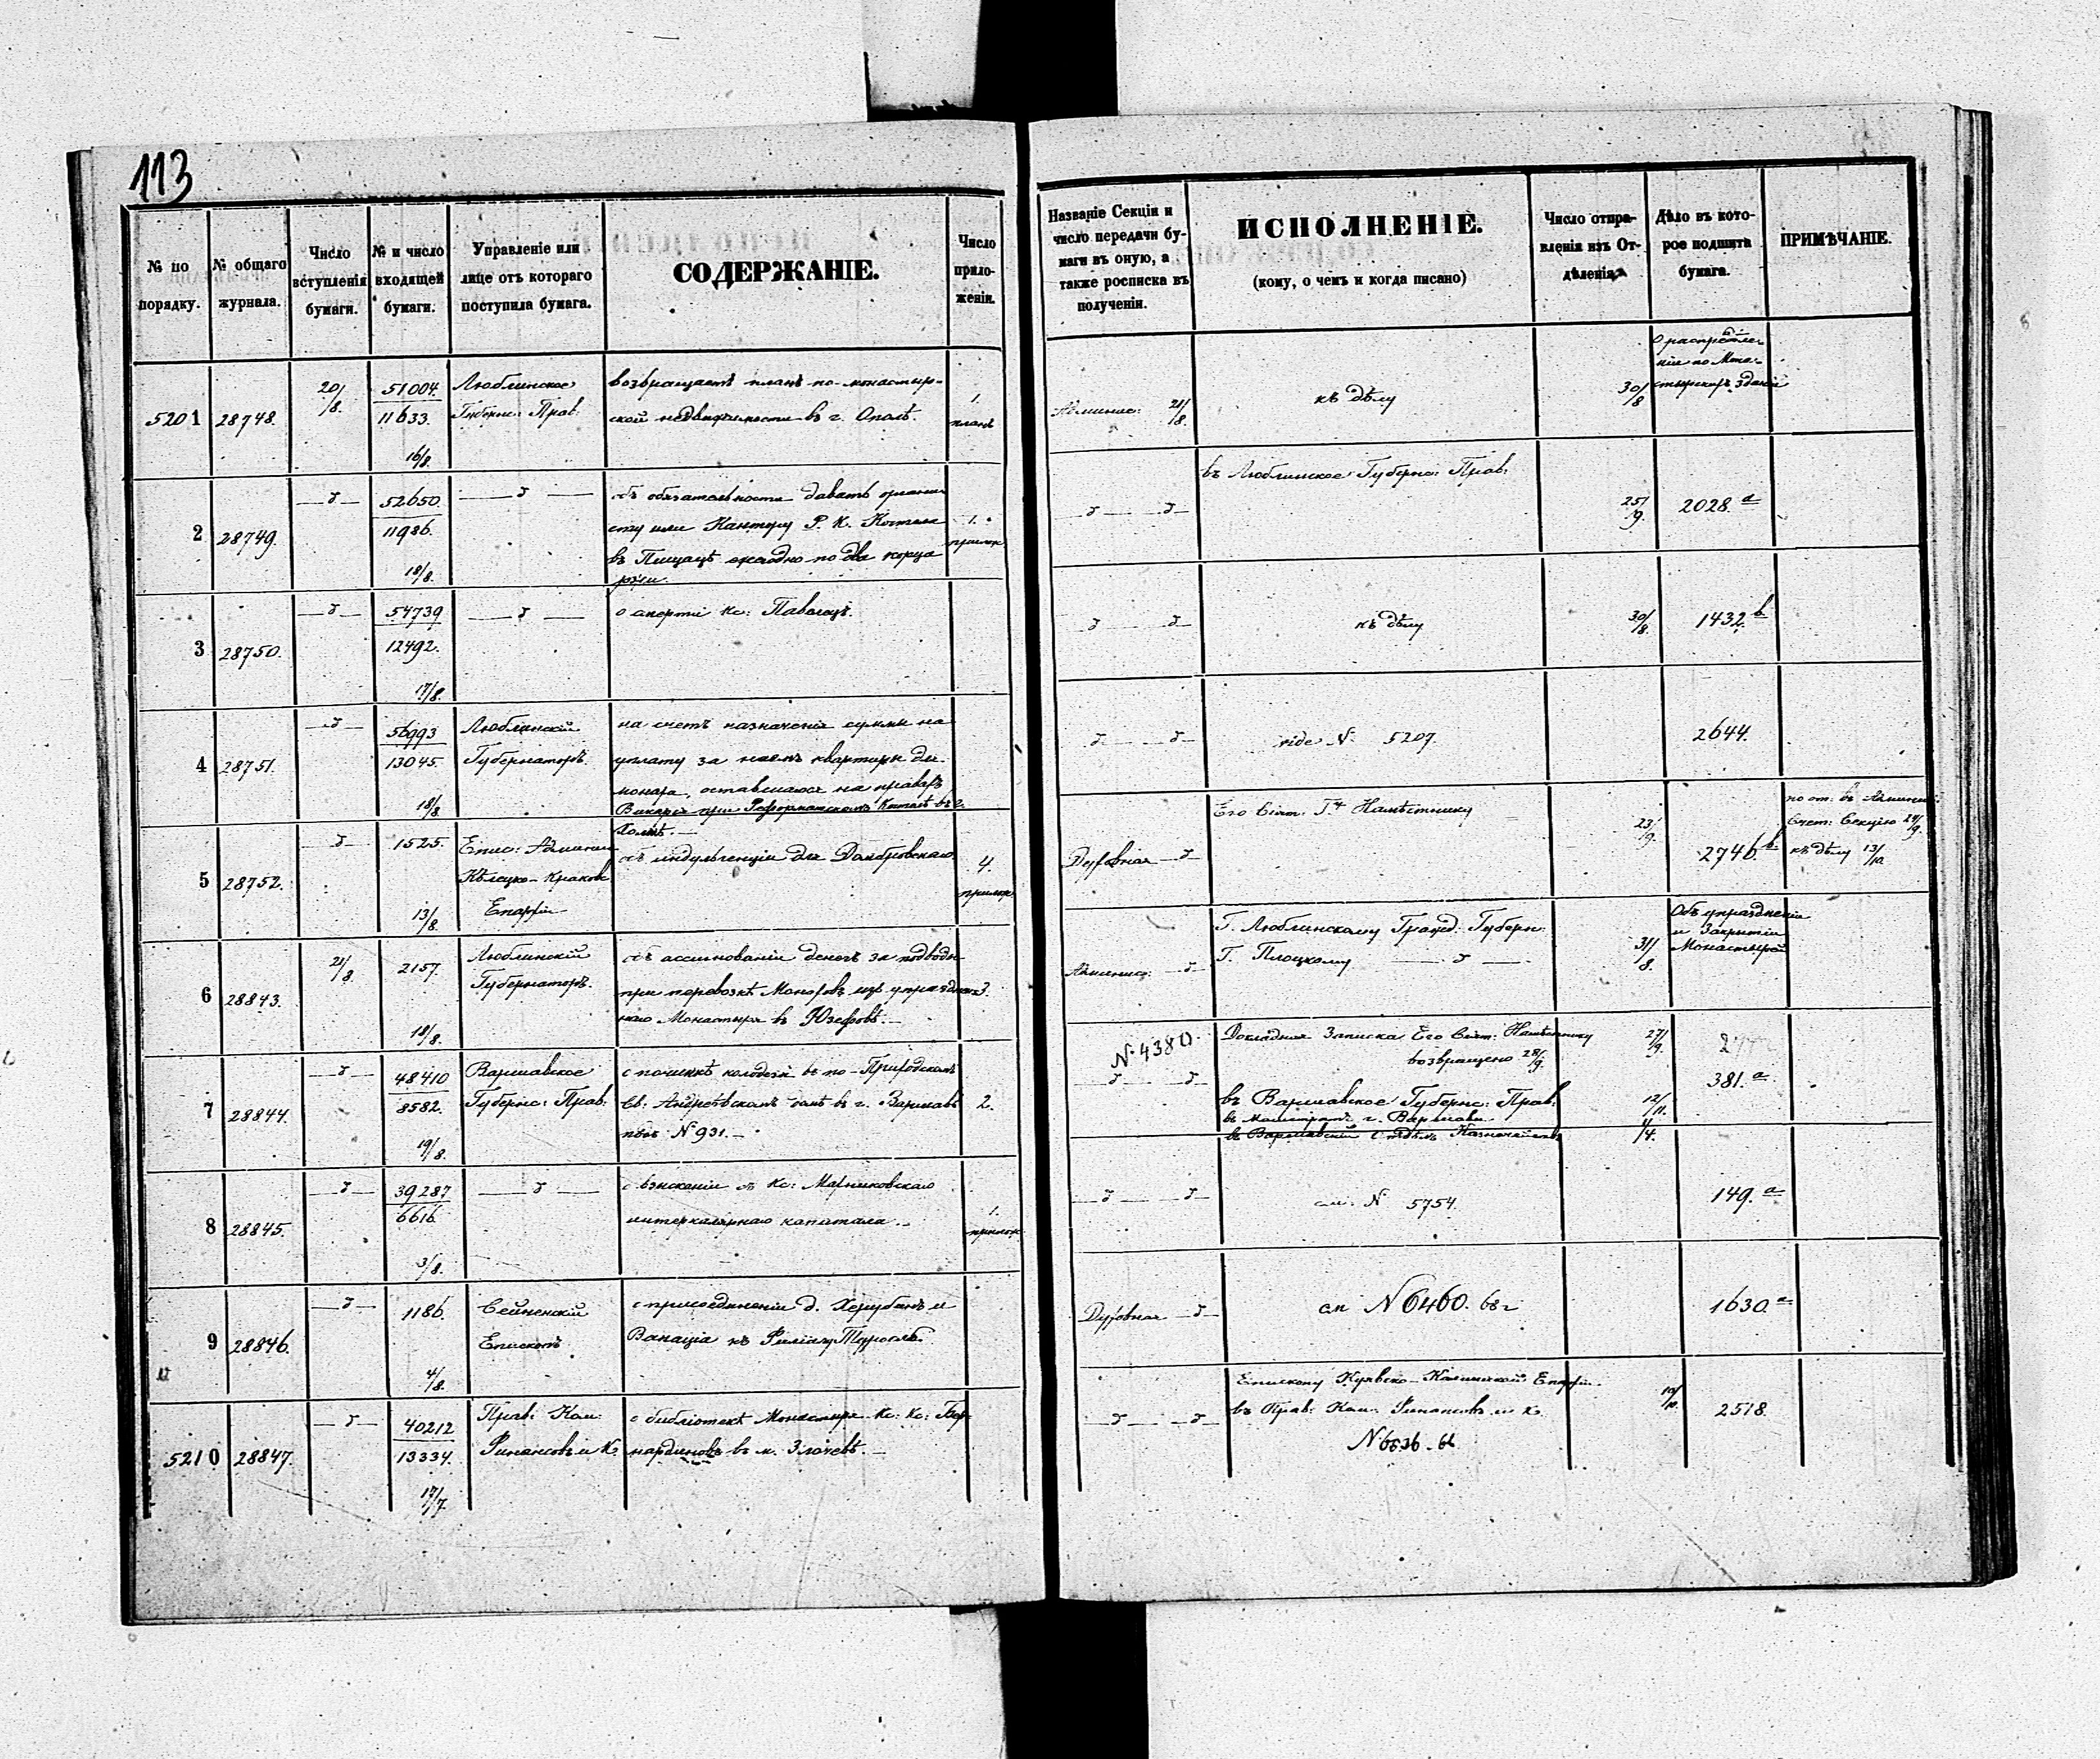 113
№ по порядку.
№ общаго журнала.
Число вступленія бумаги.
№ и число входящей бумаги.
Управленіе или лице отъ котораго поступила бумага.
СОДЕРЖАНІЕ.
Число приложеній.
Названіе Секціи и число передачи бумаги въ оную, а также росписка въ полученіи.
ИСПОЛНЕНІЕ.
(кому, о чемъ и когда писано)
Число отправленія изъ Отдѣленія.
Дѣло въ которое подшита бумага.
ПРИМѢЧАНІЕ.
5201 28748. 20/8. 51004. Люблинское
возвращаетъ планъ по монастыр-
11633. Губернс: Прав:
ской недвижимости въ г. Ополѣ.
1. планъ
16/8.
Админис: 21/8.
къ дѣлу
30/8
О распредѣле-
ніи по Мона-
стырскихъ зданій
2 28749. 52650.
объ обязательности давать органи-
11986.
сту или Кантору Р. К. Костела
1. прилож
18/8.
въ Пищацѣ ежегодно по два корца
ржи.
въ Люблинское Губернс: Прав:
25/9. 2028. а
3 28750. 54739
о смерти Кс:
12492.
17/8.
къ дѣлу
30/8. 1432. b
4 28751. 56993 Люблинскій
на счетъ назначенія суммы на
13045. Губернаторъ.
уплату за наемъ квартиры для
монаха, оставшагося на правахъ
18/8
Викарія при Реформатскомъ Костелѣ въ г.
Холмѣ.
vide N. 5207.
2644.
5 28752. 1525. Епис: Админис
объ индульгенціи для Домбровскаго.
Кѣлецко-Краковс
4. прилож
13/8. Епархіи
Духовная
Его Сіят: Гну Намѣстнику
23/9. 2746. b
по от: въ Админис:
Счет: Секцію 24/9.
къ дѣлу 13/10.
6 28843. 21/8. 2157. Люблинскій
объ ассигнованіи денегъ за подводы
Губернаторъ.
при перевозкѣ Монаховъ изъ упраздн
3.
18/8.
наго Монастыря въ Юзефовѣ.
Админис:
Г. Люблинскому Гражд. Губерн:
Г. Плоцкому
31/8.
Объ упраздненіи
и Закрытіи
Монастырей
7 28844. 48410 Варшавское
о починкѣ колодезя въ по-Приходскомъ
8582. Губернс: Прав:
Св: Андреевскомъ домѣ въ г. Варшавѣ
2.
19/8.
подъ N 931.
N. 4380.
Докладная Записка Его Сіят: Намѣстнику
27/9.
возвращено 28/9.
381. а
въ Варшавское Губернс: Прав:
12/11.
въ Магистратъ г. Варшавы
въ Варшавскій Отдѣлъ Казначейства
/4.
8 28845. 39287
о взысканіи съ Кс: Марчиковскаго
6616.
интеркалярнаго капитала.
1. прилож
3/8.
см. N 5754.
149. а
9 28846. 1186. Сейненскій
о присоединеніи д.
Епископъ
4/8.
Духовная
см N 6460. 68 г
1630. а
5210 28847. 40212 Прав: Ком:
о библіотекѣ Монастыря Кс: Кс: Бер-
13334. Финансовъ и К.
нардиновъ въ м. Злочевѣ.
17/7.
Епископу Куявско-Калишской Епархіи.
10/10. 2518.
въ Прав: Ком: Финансовъ и К.